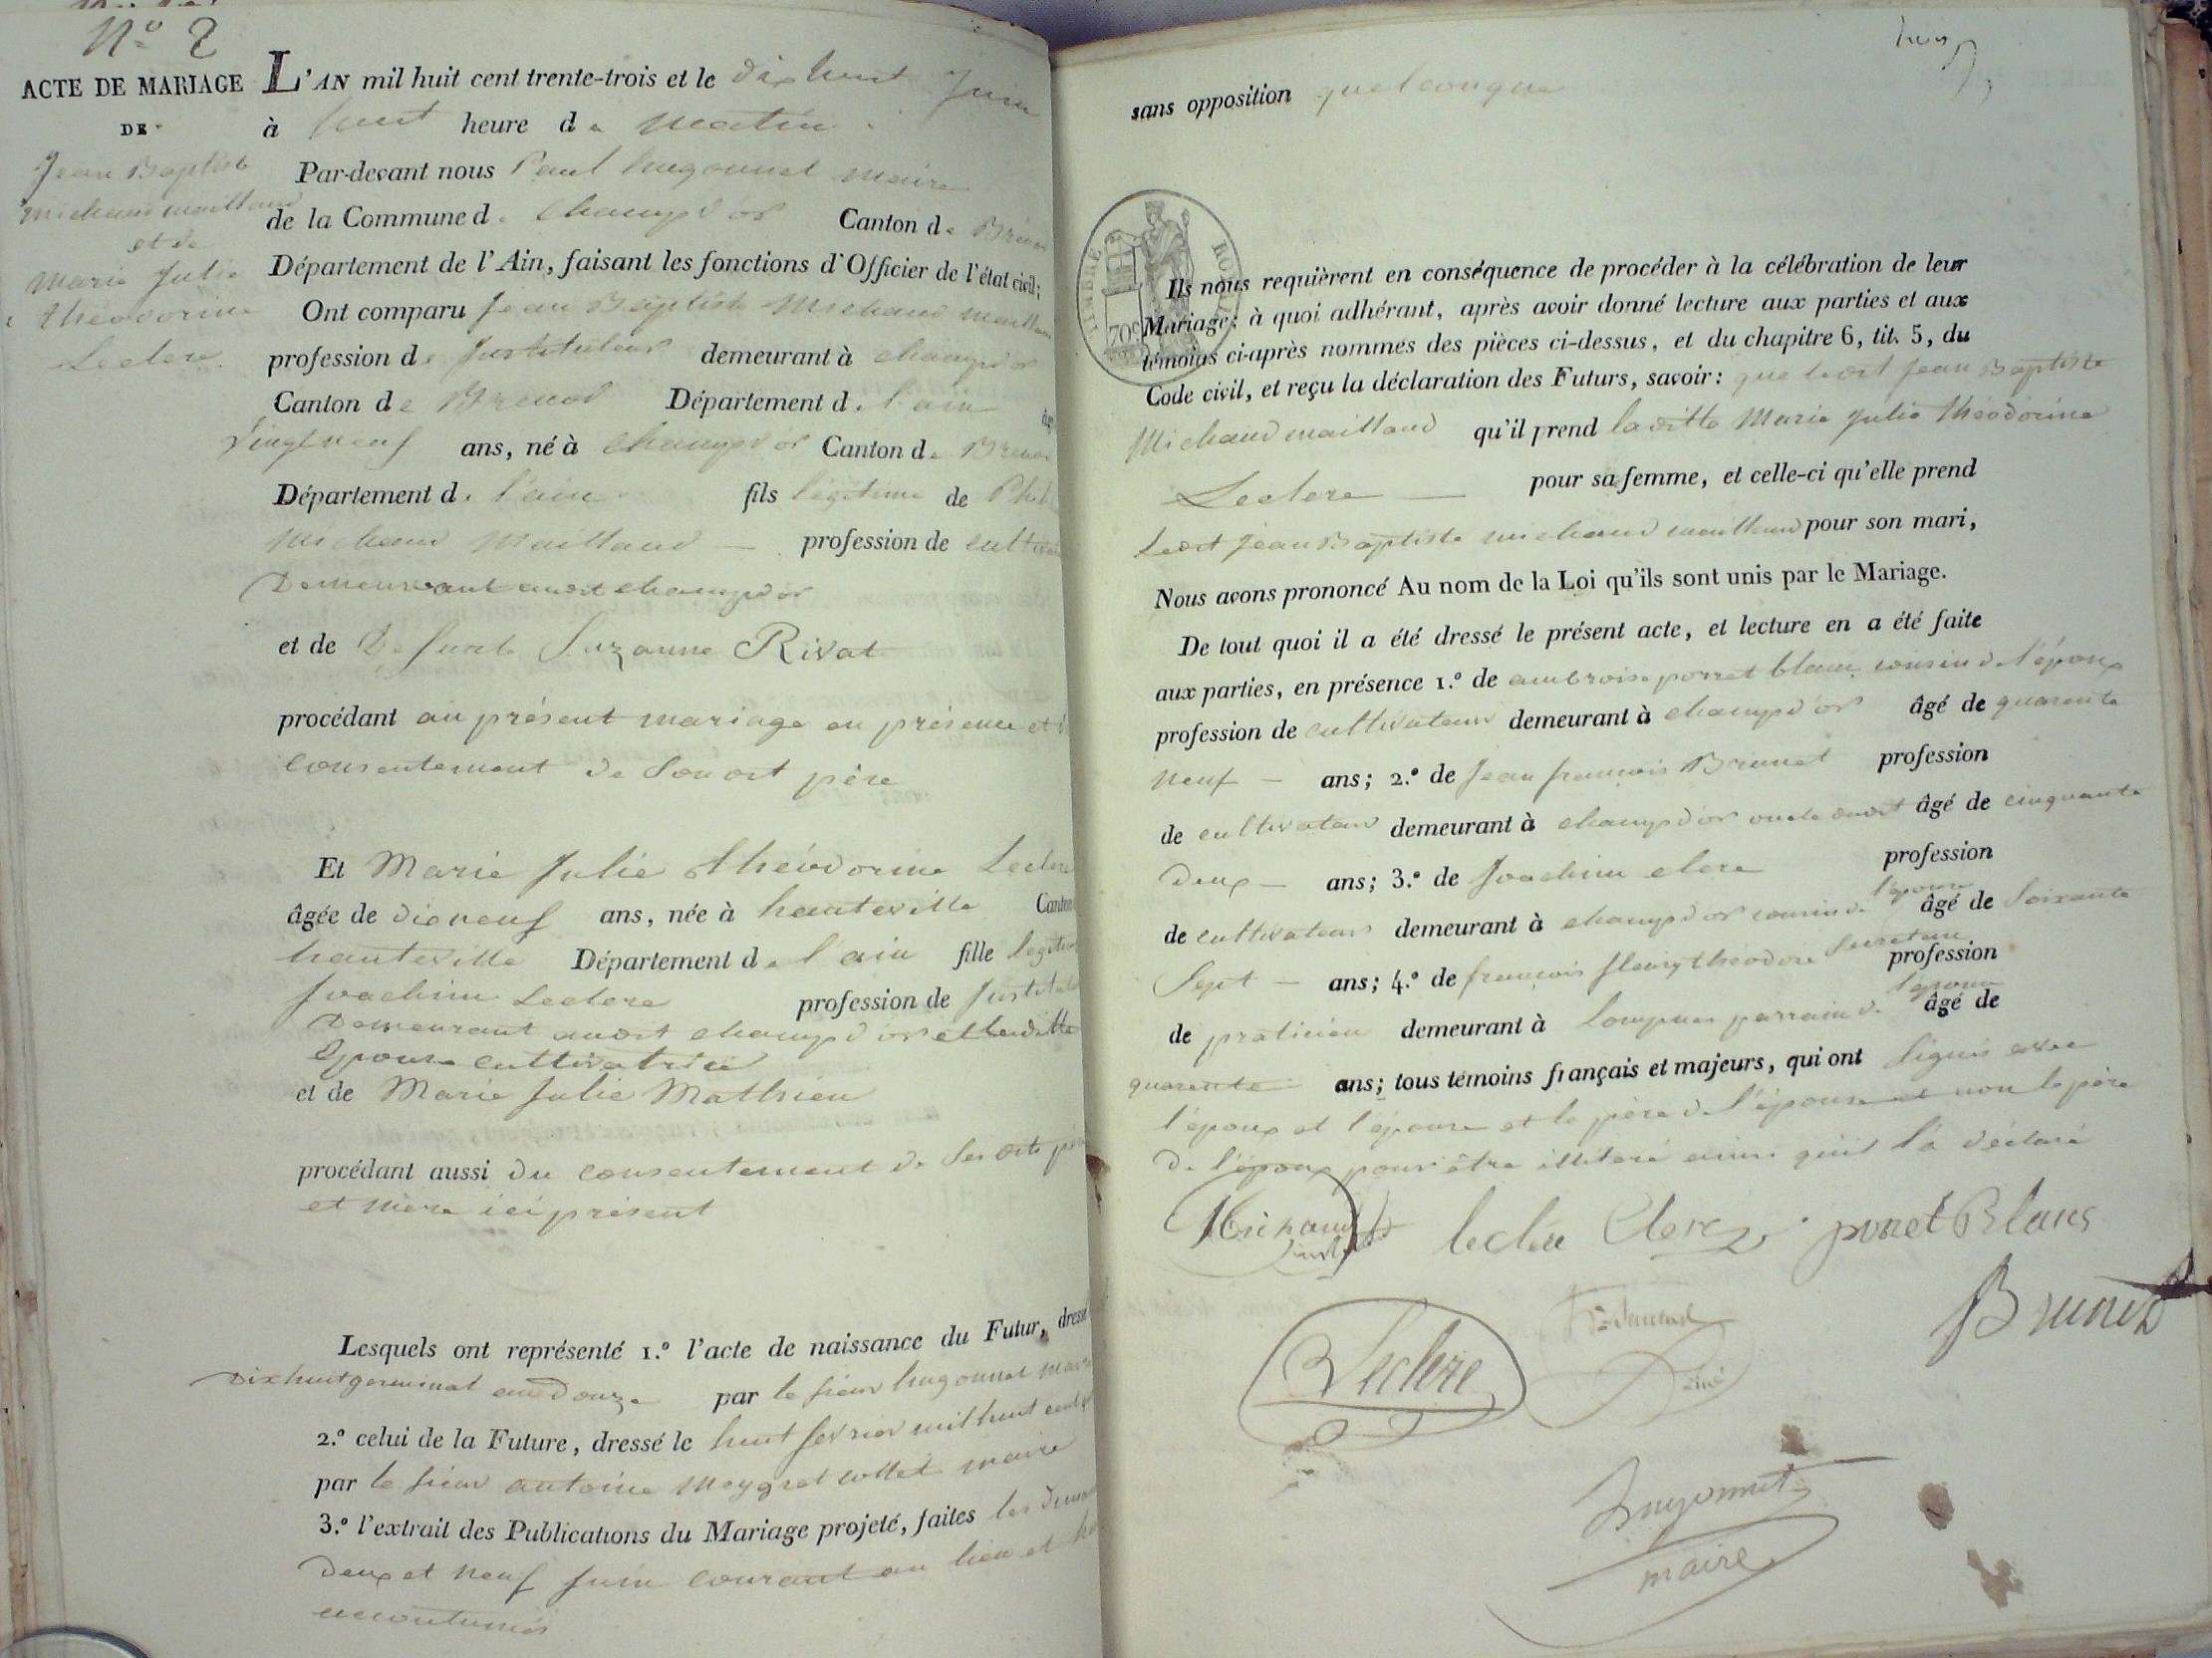 N.º 2
ACTE DE MARIAGE
DE
Jean Baptiste
michaud maillaud
et de
Marie Julie
théodorine
Leclerc
L'AN mil huit cent trente-trois et le dix huit Juin
à huit heure de matin
Par-devant nous Paul hugonnet maire
de la Commune de champd'or Canton de Bréno
Département de l'Ain, faisant les fonctions d'Officier de l'état civil;
Ont comparu Jean Baptiste Michaud maillau
profession d'Instituteur demeurant à champd'or
Canton de Brenod Département de l'ain
vingt neuf ans, né à champd'or Canton de Breno
Département de l'ain fils légitime de
Michaud Maillaud profession de cultiv
Demeurant audit champd'or
et de Defunte Suzanne Rivat
procédant au présent mariage en présence et
consentement de son dit père
Et Marie Julie théodorine Leclerc
âgée de dix neuf ans, née à hauteville Canton
hauteville Département de l'ain fille légitime
Joachim Leclerc profession de Institut
Demeurant audit champd'or et laditte
Epouse cultivatrice
et de Marie Julie Mathieu
procédant aussi du consentement de ses dits pèr
et mère ici présent
Lesquels ont représenté 1.º l'acte de naissance du Futur, dressé
Dix huit germinal an douze par le sieur hugonnet maire
2.º celui de la Future, dressé le huit février mil huit cent
par le sieur antoine Meygret collet maire
3.º l'extrait des Publications du Mariage projeté, faites les
deux et neuf Juin courant au lieu et
accoutumés
sans opposition quelconque
TIMBRE ROYAL
70c
Ils nous requièrent en conséquence de procéder à la célébration de leur
Mariage; à quoi adhérant, après avoir donné lecture aux parties et aux
témoins ci-après nommés des pièces ci-dessus, et du chapitre 6, tit. 5, du
Code civil, et reçu la déclaration des Futurs, savoir: que ledit Jean Baptiste
Michaud maillaud qu'il prend laditte Marie Julie théodorine
Leclerc pour sa femme, et celle-ci qu'elle prend
Ledit Jean Baptiste michaud maillaud pour son mari,
Nous avons prononcé Au nom de la Loi qu'ils sont unis par le Mariage.
De tout quoi il a été dressé le présent acte, et lecture en a été faite
aux parties, en présence 1.º de ambroise porret blanc cousin de l'époux
profession de cultivateur demeurant à champd'or âgé de quarente
neuf ans; 2.º de Jean françois Brunet profession
de cultivateur demeurant à champd'or oncle dudit âgé de cinquante
deux ans; 3.º de Joachim clerc profession
de cultivateur demeurant à champd'or cousin de l'épouse âgé de soixante
Sept ans; 4.º de françois fleury théodore profession
de praticien demeurant à Lompnes parrain de l'épouse âgé de
quarente ans; tous témoins français et majeurs, qui ont signés avec
l'époux et l'épouse et le père de l'épouse et non le père
De l'époux pour être illiteré ainsi qu'il l'a déclaré
Michaud
leclerc Clerc porret Blanc
Brunet
Leclerc
hugonnet
maire